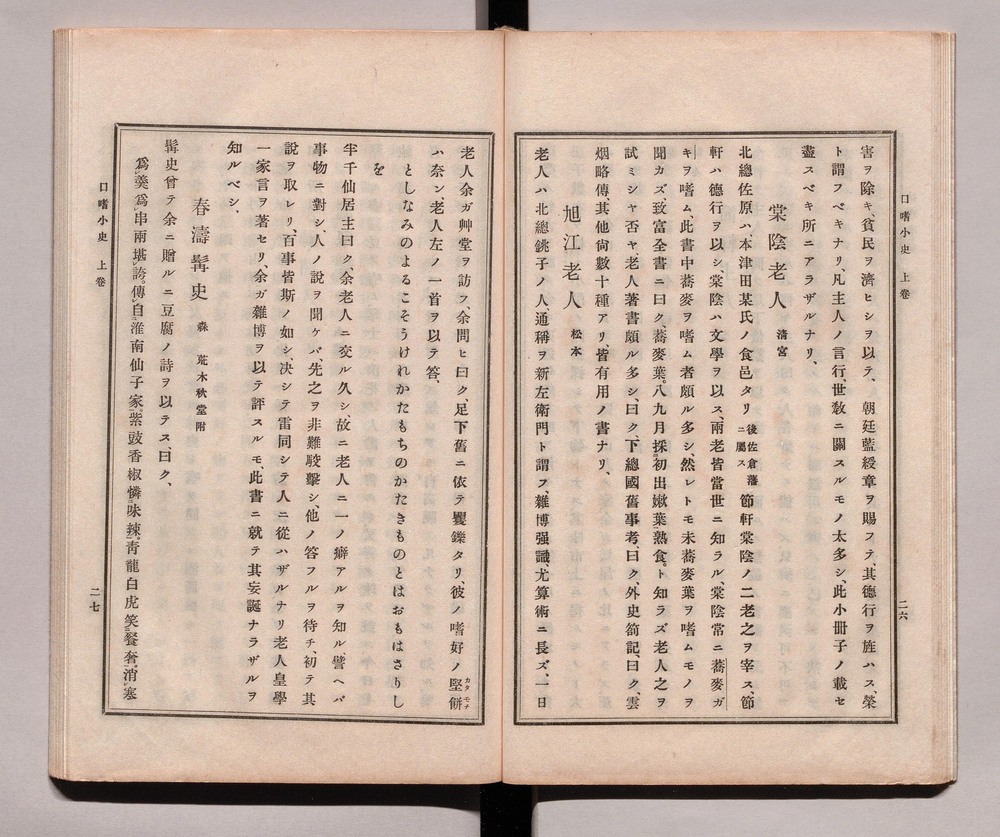 口嗜小史 上卷
害ヲ除キ、貧民ヲ濟ヒシヲ以テ、 朝廷藍綬章ヲ賜フテ、其德行ヲ旌ハス、榮
ト謂フベキナリ、凡主人ノ言行、世敎ニ關スルモノ太多シ、此小册子ノ載セ
盡スベキ所ニアラザルナリ、
棠陰老人 淸宮
北總佐原ハ、本津田某氏ノ食邑タリ後佐倉藩ニ屬ス節軒棠陰ノ二老之ヲ宰ス、節
軒ハ德行ヲ以シ、棠陰ハ文學ヲ以ス、兩老皆當世ニ知ラル、棠陰常ニ蕎麥ガ
キヲ嗜ム、此書中蕎麥ヲ嗜ム者頗ル多シ、然レトモ未蕎麥葉ヲ嗜ムモノヲ
聞カズ、致富全書ニ曰ク、蕎麥葉。八九月採。初出嫩葉。熟食。ト知ラズ老人之ヲ
試ミシヤ否ヤ老人著書頗ル多シ、曰ク、下總國舊事考、曰ク、外史箚記、曰ク、雲
烟略傳、其他尙數十種アリ、皆有用ノ書ナリ、
旭江老人 松本
老人ハ北總銚子ノ人、通稱ヲ新左衛門ト謂フ、雜博强識、尤算術ニ長ズ、一日
二六
口嗜小史 上卷
老人余ガ艸堂ヲ訪フ、余問ヒ曰ク、足下舊ニ依テ矍鑠タリ、彼ノ嗜好ノ堅餅カタモチ
ハ奈ン、老人左ノ一首ヲ以テ答、
としなみのよるこそうけれかたもちのかたきものとはおもはさりし
を
半千仙居主曰ク、余老人ニ交ル久シ故ニ老人ニ一ノ癖アルヲ知ル、譬ヘバ
事物ニ對シ、人ノ說ヲ聞ケバ、先之ヲ非難駁擊シ、他ノ答フルヲ待チ、初テ其
說ヲ取レリ、百事皆斯ノ如シ、決シテ雷同シテ人ニ從ハザルナリ老人皇學
一家言ヲ著セリ、余ガ雜博ヲ以テ評スルモ、此書ニ就テ其妄誕ナラザルヲ
知ルベシ、
春濤髯史 森 荒木秋堂附
髯史曾テ余ニ贈ルニ豆腐ノ詩ヲ以テス曰ク、
爲羹爲串兩堪誇。傳自淮南仙子家。紫豉香椒憐味辣。靑龍白虎笑餐奢。消塞
二七